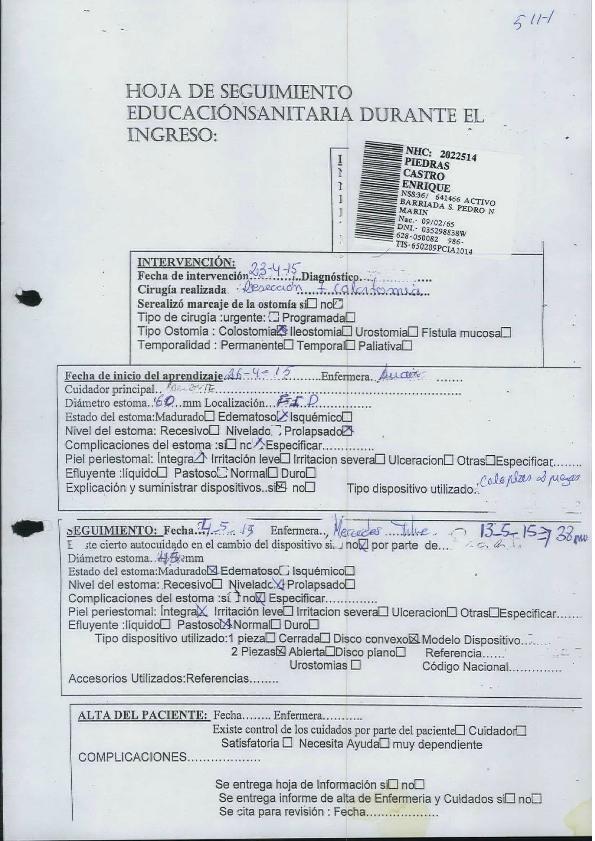 5 11-1
HOJA DE SEGUIMIENTO
EDUCACIÓNSANITARIA DURANTE EL
INGRESO:
NHC: 2022514
PIEDRAS
CASTRO
ENRIQUE
NSS:36/ 641466 ACTIVO
BARRIADA S. PEDRO N
MARIN
Nac.- 09/02/65
DNI.- 035298838W
628-050082 986-
TIS-650209PCIA1014
INTERVENCIÓN:
Fecha de intervención 23-4-15 Diagnóstic
Cirugía realizada Resección + Colostomia
Serealizó marcaje de la ostomía si☐ no☐
Tipo de cirugía :urgente: ☐ Programada☐
Tipo Ostomía : Colostomia☒ Ileostomia☐ Urostomia☐ Fístula mucosa☐
Temporalidad : Permanente☐ Temporal☐ Paliativa☐
Fecha de inicio del aprendizaje 26-4-15 Enfermera.
Cuidador principal..
Diámetro estoma..60..mm Localización. FID
Estado del estoma:Madurado☐ Edematoso☒ Isquémico☐
Nivel del estoma: Recesivo☐ Nivelado. Prolapsado☒
Complicaciones del estoma :si☐ no☒ Especificar..............
Piel periestomal: Íntegra☒ Irritación leve☐ Irritacion severa☐ Ulceracion☐ Otras☐Especificar........
Efluyente :líquido☐ Pastoso☐ Normal☐ Duro☐
Explicación y suministrar dispositivos..si☒ no☐ Tipo dispositivo utilizado: Coloplast 2 piezas
SEGUIMIENTO: Fecha. 4-5-15 Enfermera., Mercedes 13-5-15 38 mm
ste cierto autocuidado en el cambio del dispositivo si. no☒ por parte de...
Diámetro estoma..45.mm
Estado del estoma:Madurado☒ Edematoso☐ Isquémico☐
Nivel del estoma: Recesivo☐ Nivelado☒ Prolapsado☐
Complicaciones del estoma :sí☐ no☒ Especificar...........
Piel periestomal: Íntegra☒ Irritación leve☐ Irritacion severa☐ Ulceracion☐ Otras☐Especificar......
Efluyente :líquido☐ Pastoso☒ Normal☐ Duro☐
Tipo dispositivo utilizado:1 pieza☐ Cerrada☐ Disco convexo☒ Modelo Dispositivo...
2 Piezas☒ Abierta☐ Disco plano☐ Referencia......
Urostomias ☐ Código Nacional.......
Accesorios Utilizados:Referencias........
ALTA DEL PACIENTE: Fecha........ Enfermera...........
Existe control de los cuidados por parte del paciente☐ Cuidador☐
Satisfatoria ☐ Necesita Ayuda☐ muy dependiente
COMPLICACIONES...................
Se entrega hoja de Información si☐ no☐
Se entrega informe de alta de Enfermeria y Cuidados si☐ no☐
Se cita para revisión : Fecha...................